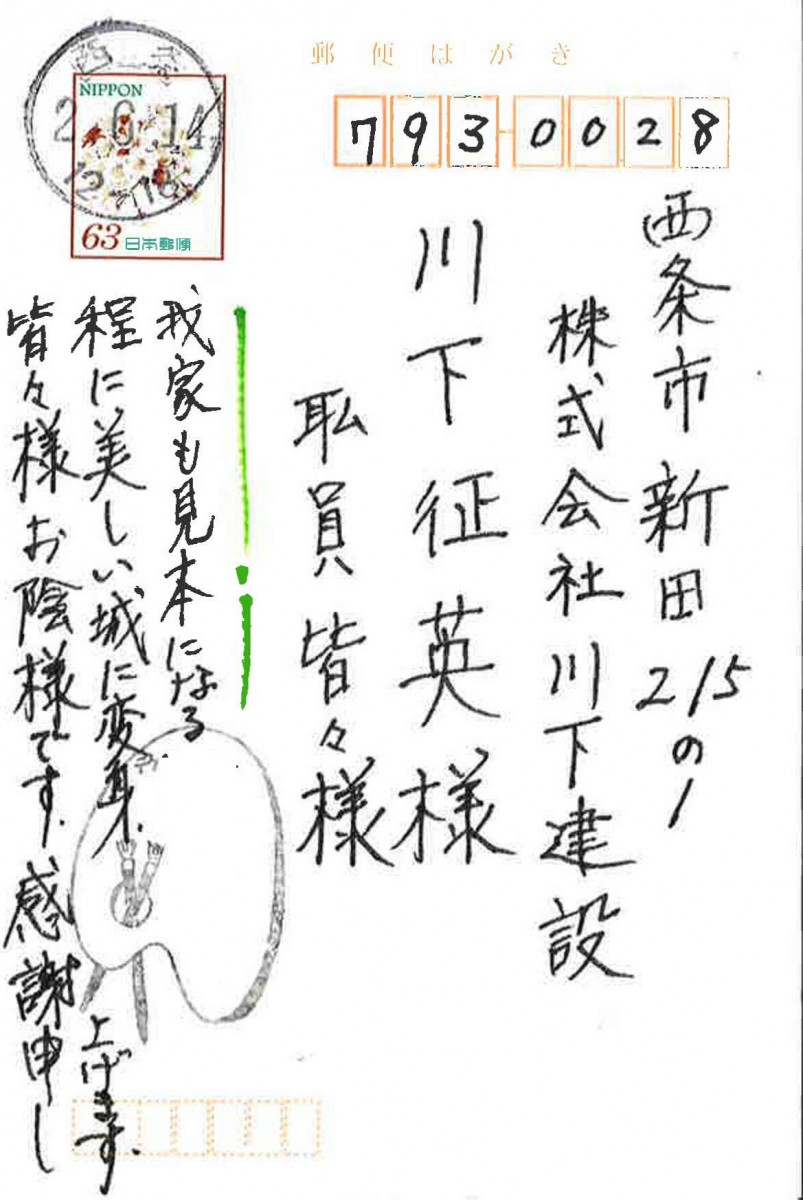 郵便はがき
793-0028
西条市新田215の1
株式会社川下建設
川下征英様
職員皆々様
NIPPON
2.6.14
12-18
63日本郵便
我家も見本になる
程に美しい城に変身.
皆々様お陰様です.感謝申し
上げます.